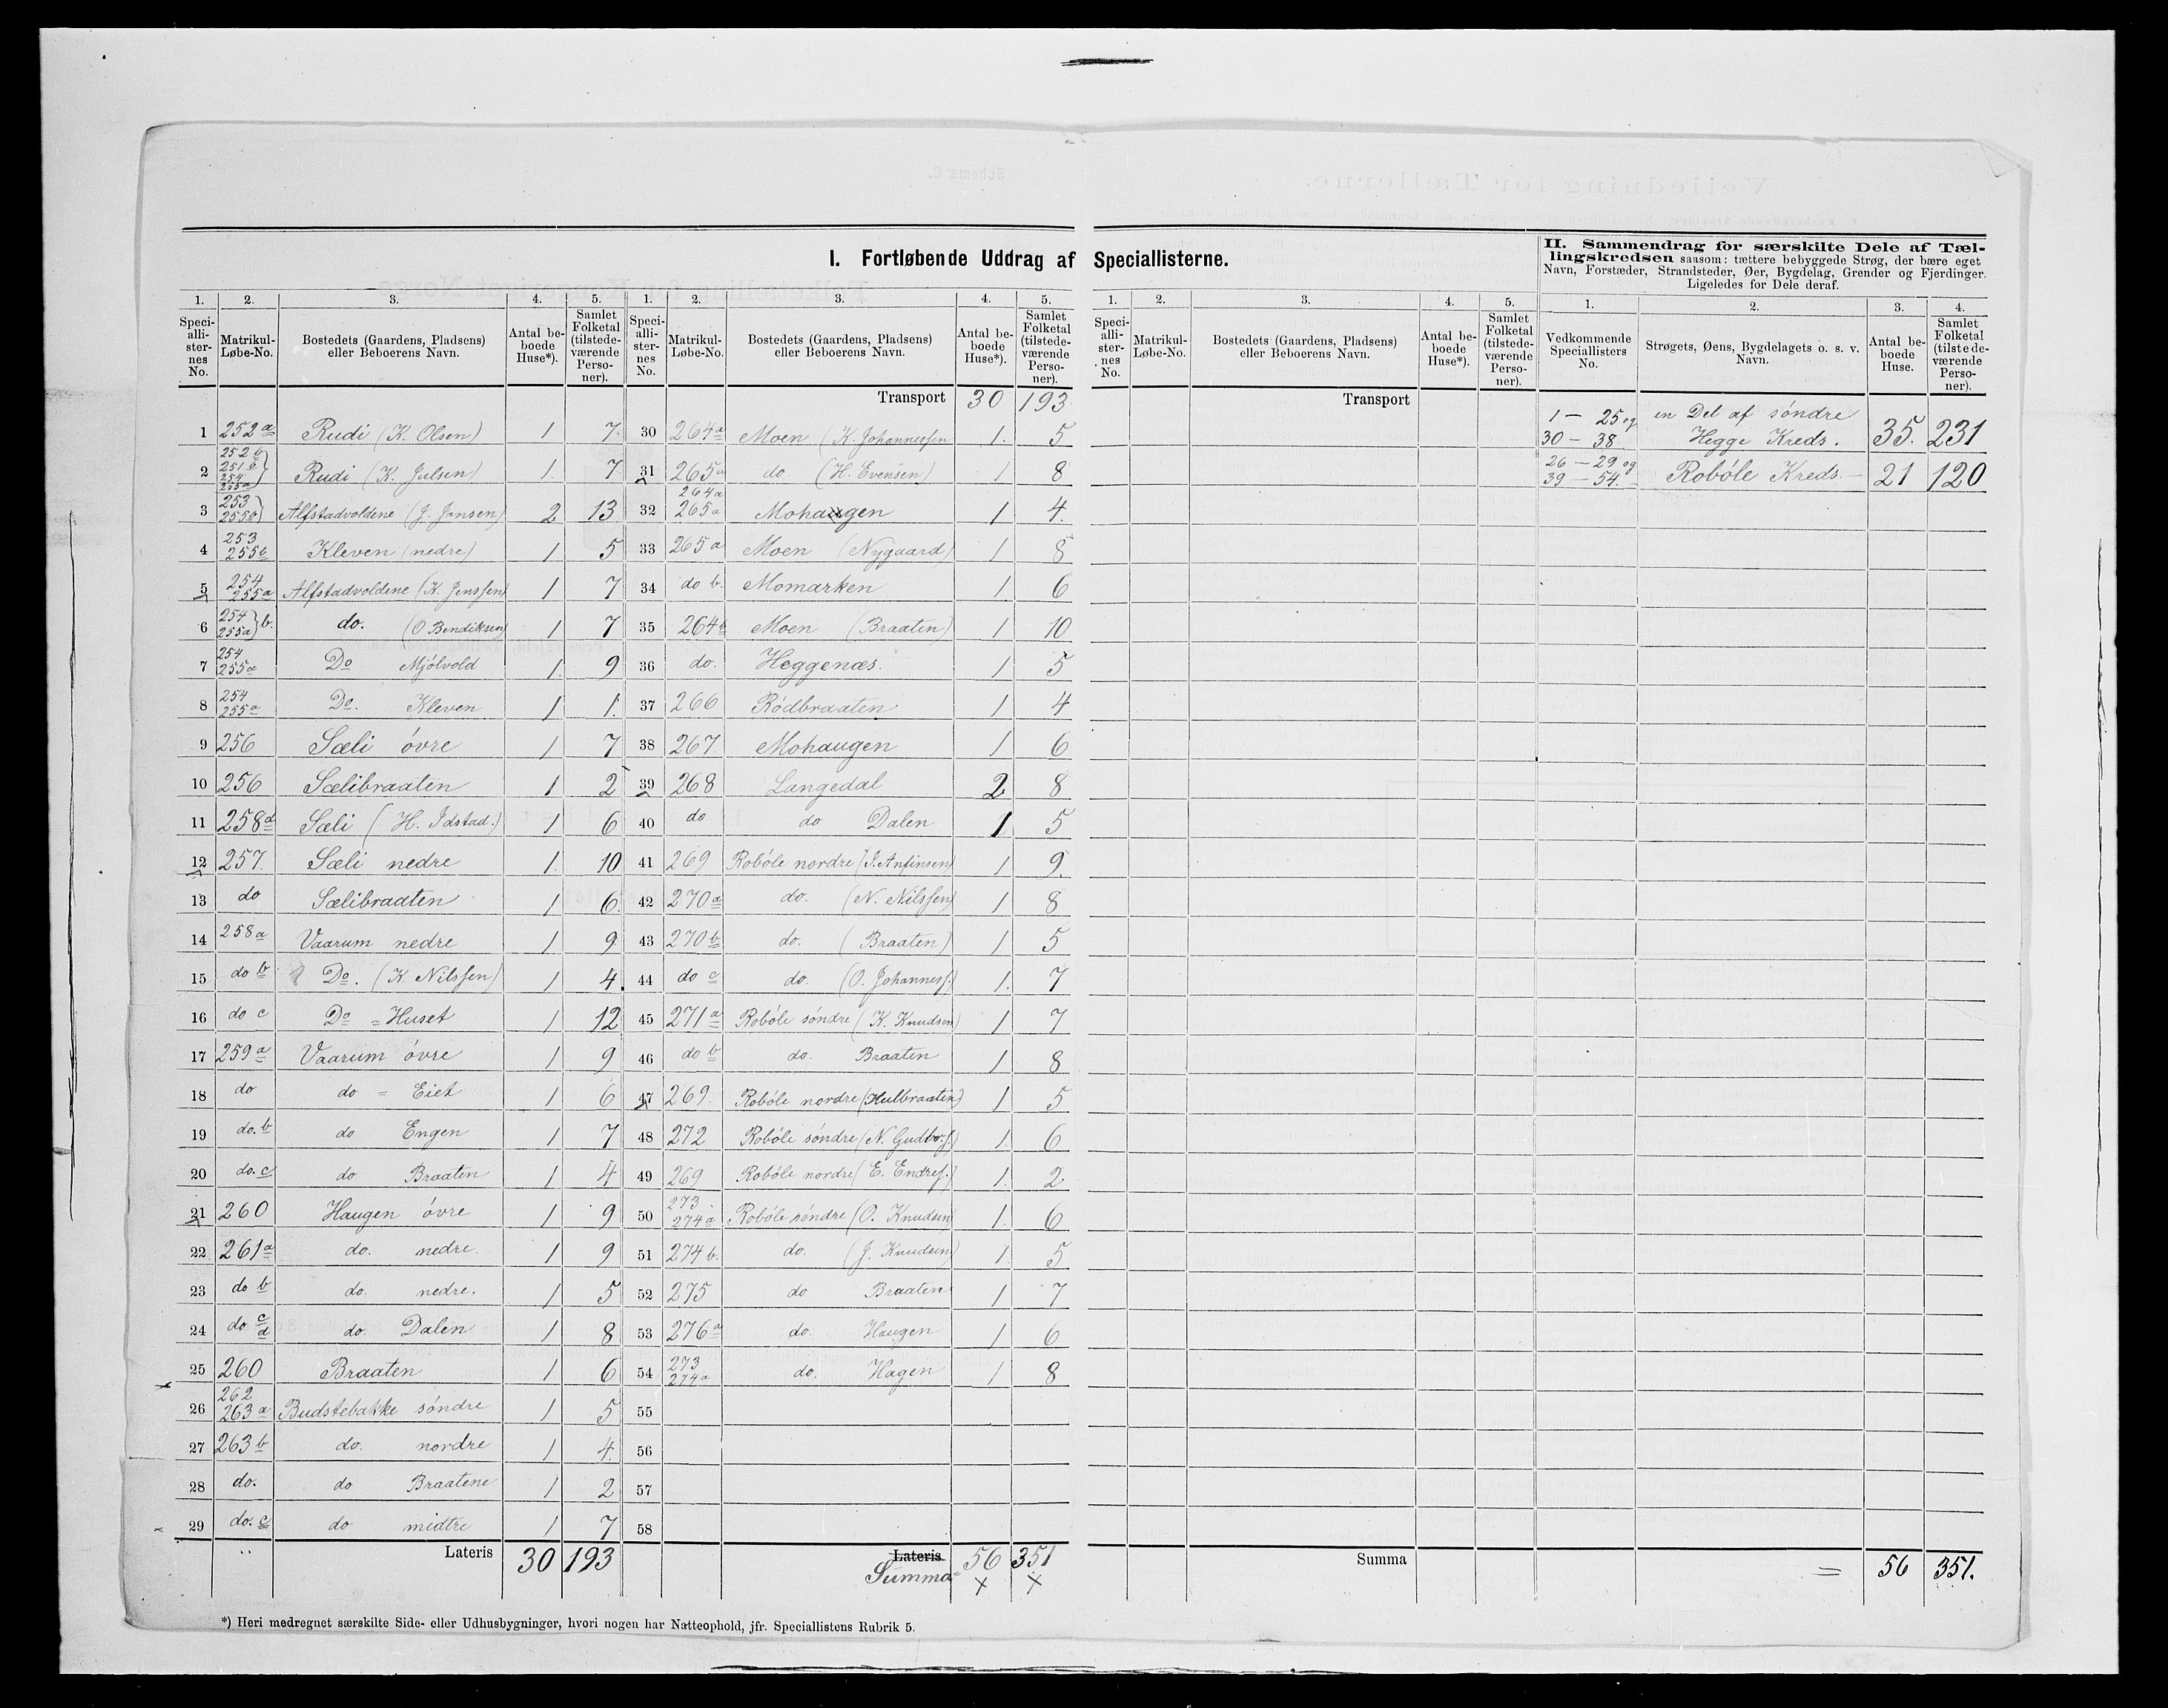 I. Fortløbende Uddrag af Speciallisterne.
II. Sammendrag for særskilte Dele af Tæl-
lingskredsen saasom: tættere bebyggede Strøg, der bære eget
Navn, Forstæder, Strandsteder, Øer, Bygdelag, Grender og Fjerdinger.
Ligeledes for Dele deraf.
1. 2. 3. 4. 5. 1. 2. 3. 4. 5. 1. 2. 3. 4. 5. 1. 2. 3. 4.
Speci-alli-ster-nes No. Matrikul-Løbe-No. Bostedets (Gaardens, Pladsens) eller Beboerens Navn. Antal be-boede Huse*). Samlet Folketal (tilstede-værende Perso-ner).
Speci-alli-ster-nes No. Matrikul-Løbe-No. Bostedets (Gaardens, Pladsens) eller Beboerens Navn. Antal be-boede Huse*). Samlet Folketal (tilstede-værende Perso-ner).
Speci-alli-ster-nes No. Matrikul-Løbe-No. Bostedets (Gaardens, Pladsens) eller Beboerens Navn. Antal be-boede Huse*). Samlet Folketal (tilstede-værende Perso-ner).
Vedkommende Speciallisters No. Strøgets, Øens, Bygdelagets o. s. v. Navn. Antal be-boede Huse. Samlet Folketal (tilstede-værende Perso-ner).
1 252a Rudi (K. Olsen) 1 7
2 252b 251c 254 255a Rudi (K. Julsen) 1 7
3 253 255b Alfstadvoldene (J. Jansen) 2 13
4 253 255b Kleven (nedre) 1 5
5 254 255a Alfstadvoldene (K. Jenssen) 1 7
6 254 255a b. do. (O Bendiksen) 1 7
7 254 255a Do Mjölvold 1 9
8 254 255a Do. Kleven 1 1.
9 256 Sæli övre 1 7
10 256 Sælibraaten 1 2
11 258d Sæli (H. Idstad.) 1 6
12 257. Sæli nedre 1. 10
13 do Sælibraaten 1 6.
14 258a Vaarum nedre 1 9
15 do b Do. (K. Nilssen) 1 4.
16 do c Do = Huset 1 12
17 259a Vaarum övre 1 9
18 do do = Eiet 1 6
19 do. b do Engen 1 7
20 do. c do Braaten 1 4
21 260 Haugen övre 1 9
22 261a do. nedre. 1 9
23 do b do. nedre. 1 5
24 do c d do. Dalen 1 8
25 260 Braaten 1 6
26 262 263a Budstebakke söndre 1 5
27 263b do. nordre 1 4.
28 do. do Braatene 1 2
29 do. c do midtre 1 7
Lateris 30 193
Transport 30 193
30 264a Moen (K. Johannessen 1. 5
31 265a do (H. Evensen) 1 8
32 264a 265a Mohaugen 1 4.
33 265a Moen (Nygaard) 1 8
34 do b. Momarken 1 6
35 264b Moen (Braaten) 1 10
36 do. Heggenæs. 1 5
37 266 Rödbraaten 1 4
38 267. Mohaugen 1 6
39 268 Langedal 2 8
40 do do Dalen 1 5
41 269 Robóle nordre (J. Anfinsen) 1 9.
42 270a do. (N. Nilssen) 1 8
43 270b do. (Braaten) 1 5
44 do c do. (O. Johanness.) 1. 7
45 271a Robóle söndre (K. Knudsen) 1 7
46 do b do. Braaten 1 8
47 269. Robóle nordre (Hulbraaten) 1 5
48 272 Robóle söndre (N. Gudbr.s.) 1. 6
49 269 Robóle nordre (E. Endres.) 1. 2
50 273 274a Robóle söndre (O. Knudsen) 1. 6
51 274b. do. (J. Knudsen) 1. 5
52 275 do Braaten 1 7
53 276a do. Haugen 1 6
54 273 274a do. Hagen 1 8
55
56
57
58
Lateris 56 351
Summa
Transport
Summa
1 – 25 og 30 – 38 en Del af söndre Hegge Kreds. 35. 231
26 – 29 og 39 – 54. Robóle Kreds. 21 120
= 56 351.
*) Heri medregnet særskilte Side- eller Udhusbygninger, hvori nogen har Natteophold, jfr. Speciallistens Rubrik 5.